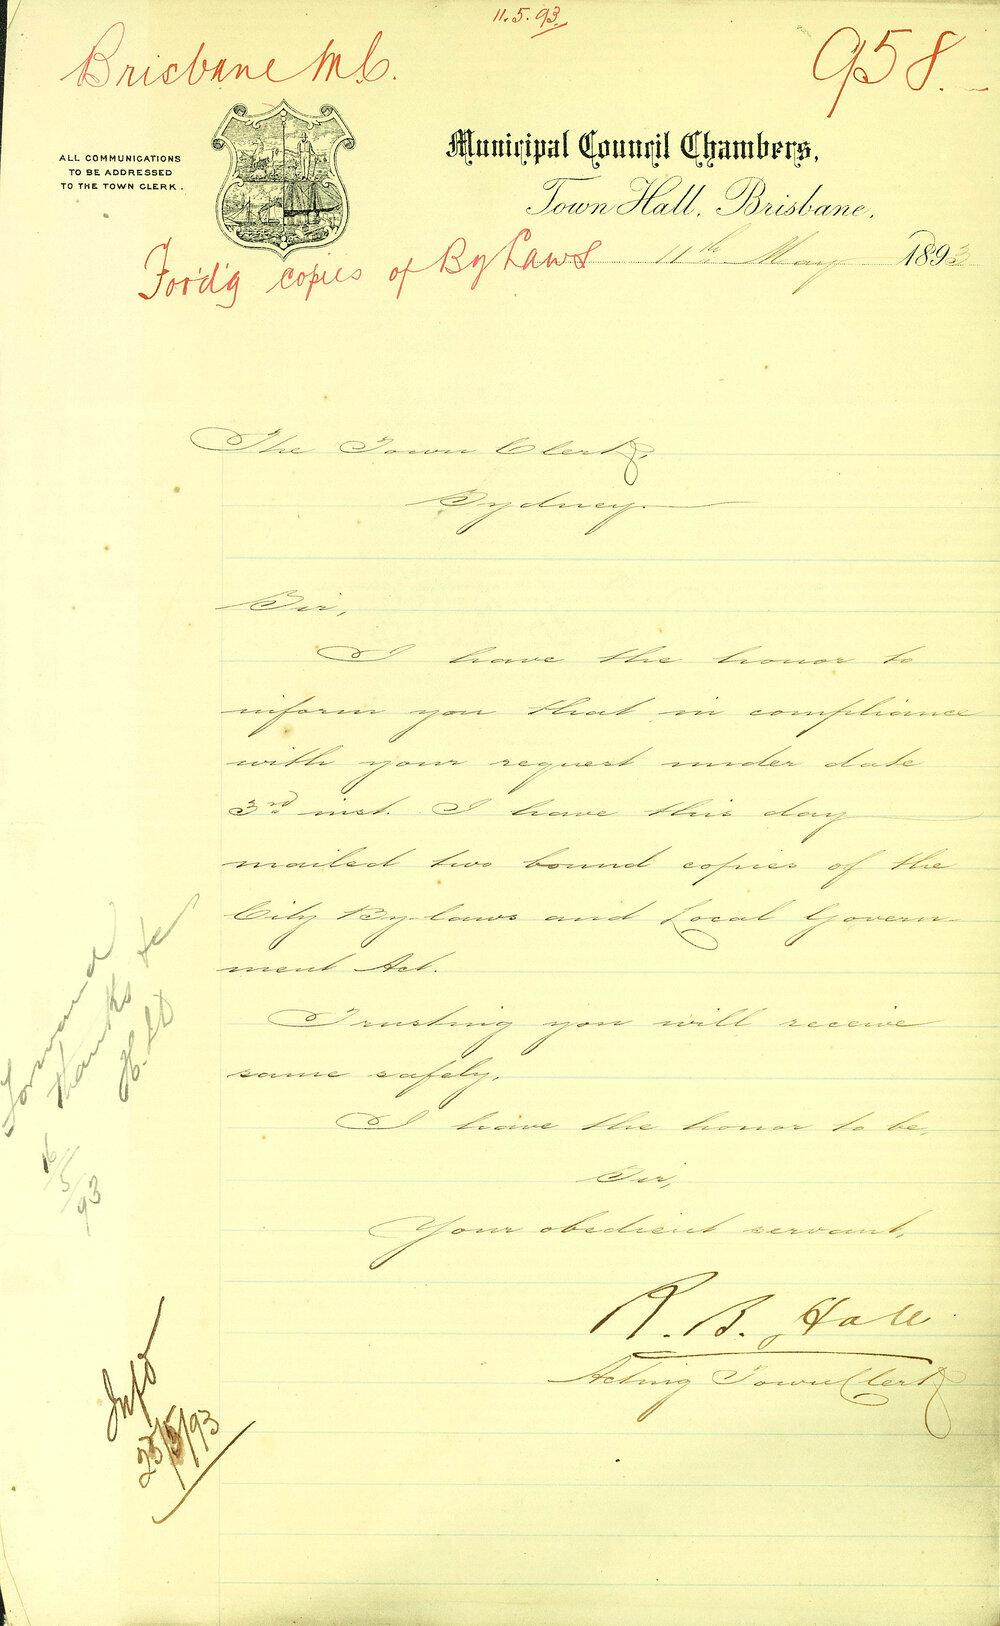 11.5.93.
Brisbane M.C.
958.
ALL COMMUNICATIONS
TO BE ADDRESSED
TO THE TOWN CLERK.
Municipal Council Chambers,
Town Hall, Brisbane,
11th May 1893
For'd'g copies of By Laws
The Town Clerk,
Sydney.
Sir,
I have the honor to
inform you that in compliance
with your request under date
3rd inst. I have this day
mailed two bound copies of the
City By-laws and Local Govern-
ment Act.
Trusting you will receive
same safely,
I have the honor to be,
Sir,
Your obedient servant,
R. B. Hall
Acting Town Clerk
thanks
16/5/93
Info